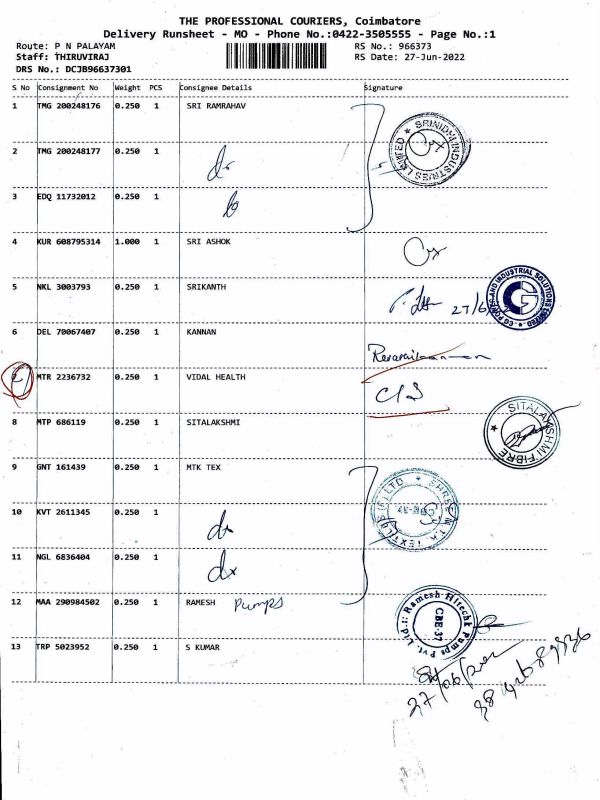 THE PROFESSIONAL COURIERS, Coimbatore
Delivery Runsheet - MO - Phone No.:0422-3505555 - Page No.:1
Route: P N PALAYAM RS No.: 966373
Staff: THIRUVIRAJ RS Date: 27-Jun-2022
DRS No.: DCJB96637301
S No Consignment No Weight PCS Consignee Details Signature
1 TMG 200248176 0.250 1 SRI RAMRAHAV
2 TMG 200248177 0.250 1
3 EDQ 11732012 0.250 1
4 KUR 608795314 1.000 1 SRI ASHOK
5 NKL 3003793 0.250 1 SRIKANTH
6 DEL 70067407 0.250 1 KANNAN
MTR 2236732 0.250 1 VIDAL HEALTH
8 MTP 686119 0.250 1 SITALAKSHMI
SITALAKSHMI FIBRE
9 GNT 161439 0.250 1 MTK TEX
10 KVT 2611345 0.250 1
11 NGL 6836404 0.250 1
12 MAA 290984502 0.250 1 RAMESH Pumps
Ramesh Hitechh Pumps Pvt. Ltd.
CBE-37
13 TRP 5023952 0.250 1 S KUMAR